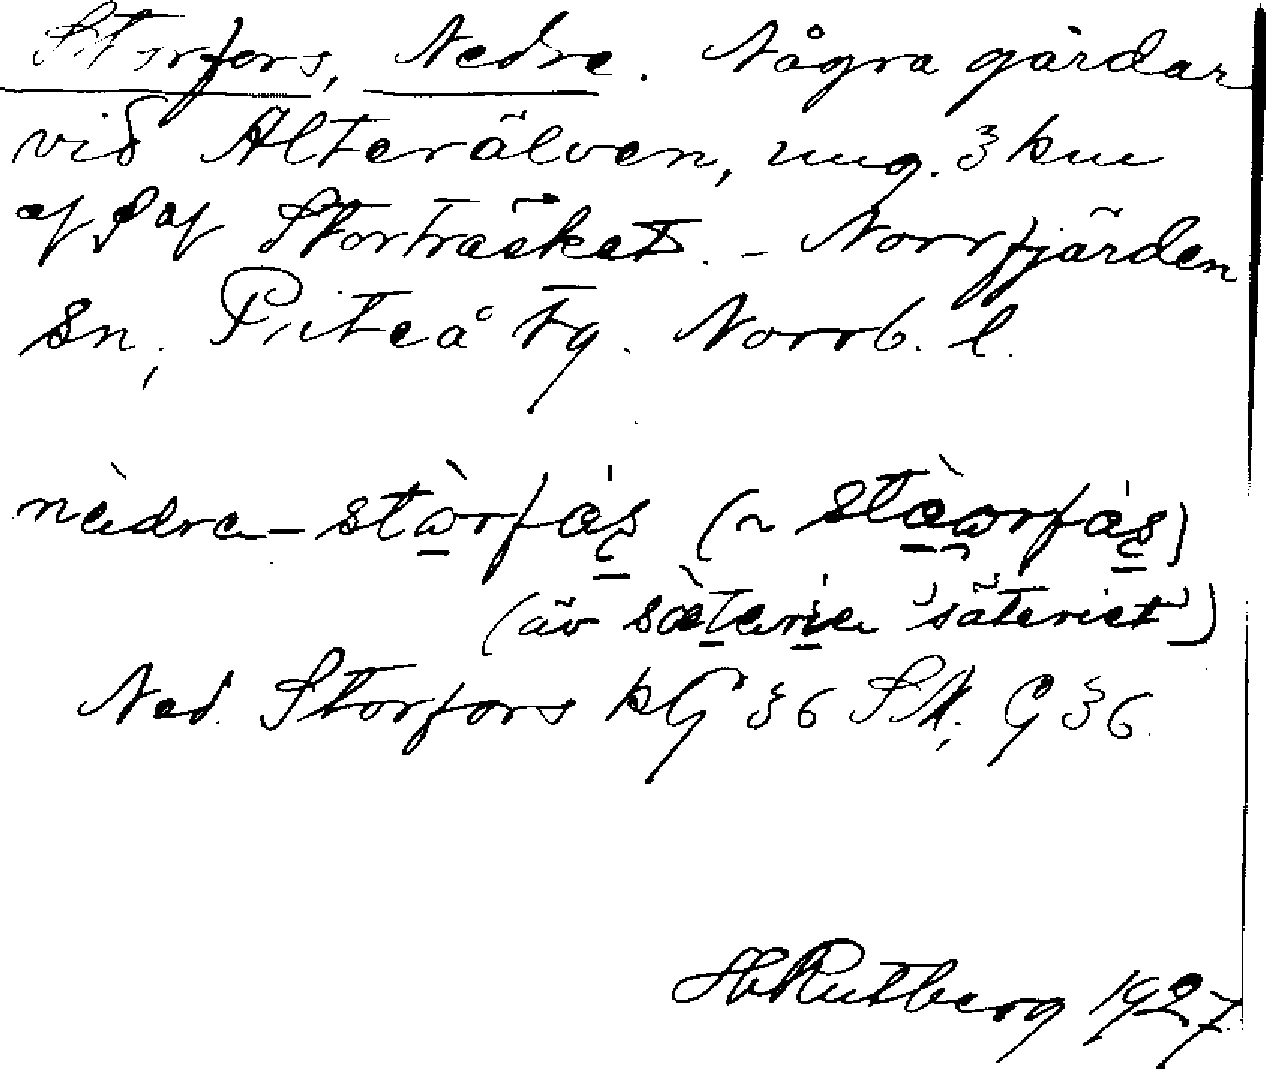 Storfors, Nedre. Några gårdar
vid Alterälven, ung. 3 km
af Storträsket. - Norrfjärden
sn, Piteå tg. Norrb. l.
nèdra-stòrfás (~ stòorfás)
(äv sæ̀teria 'säteriet')
Ned. Storfors kG 36 SK. G 36.
H Rutberg 1927